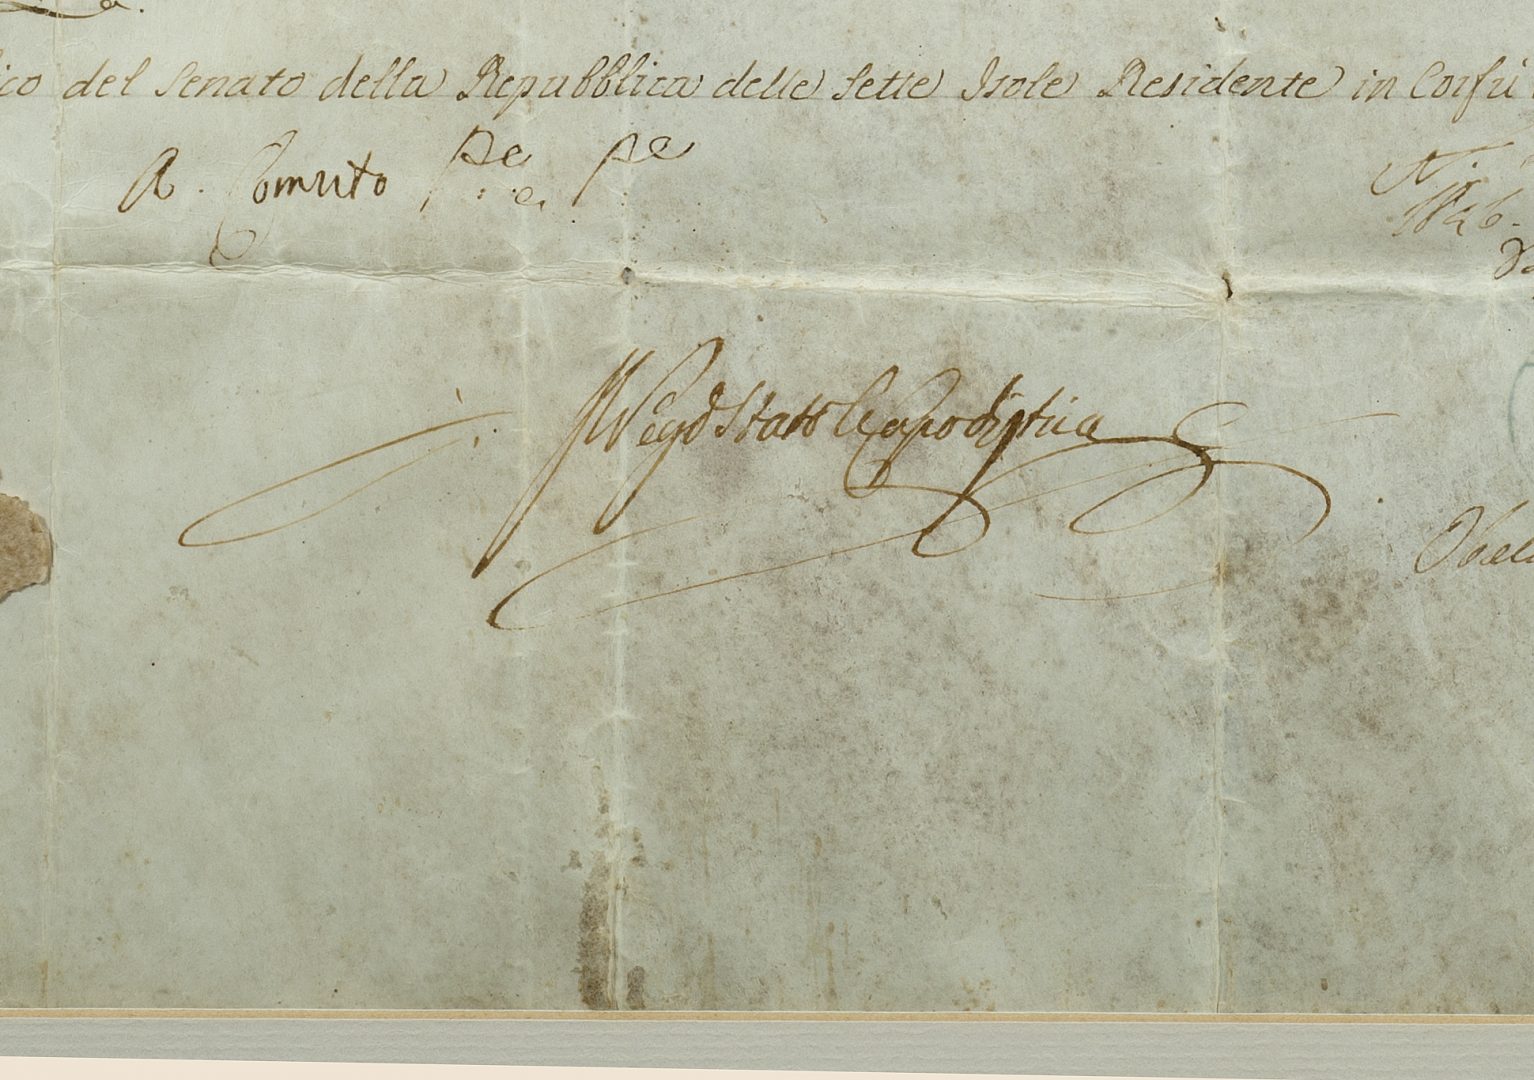 ico del Senato della Repubblica delle Sette Isole Residente in Corfù
A. Comuto Pe Pe
Il Segrio Stato C Capodistria